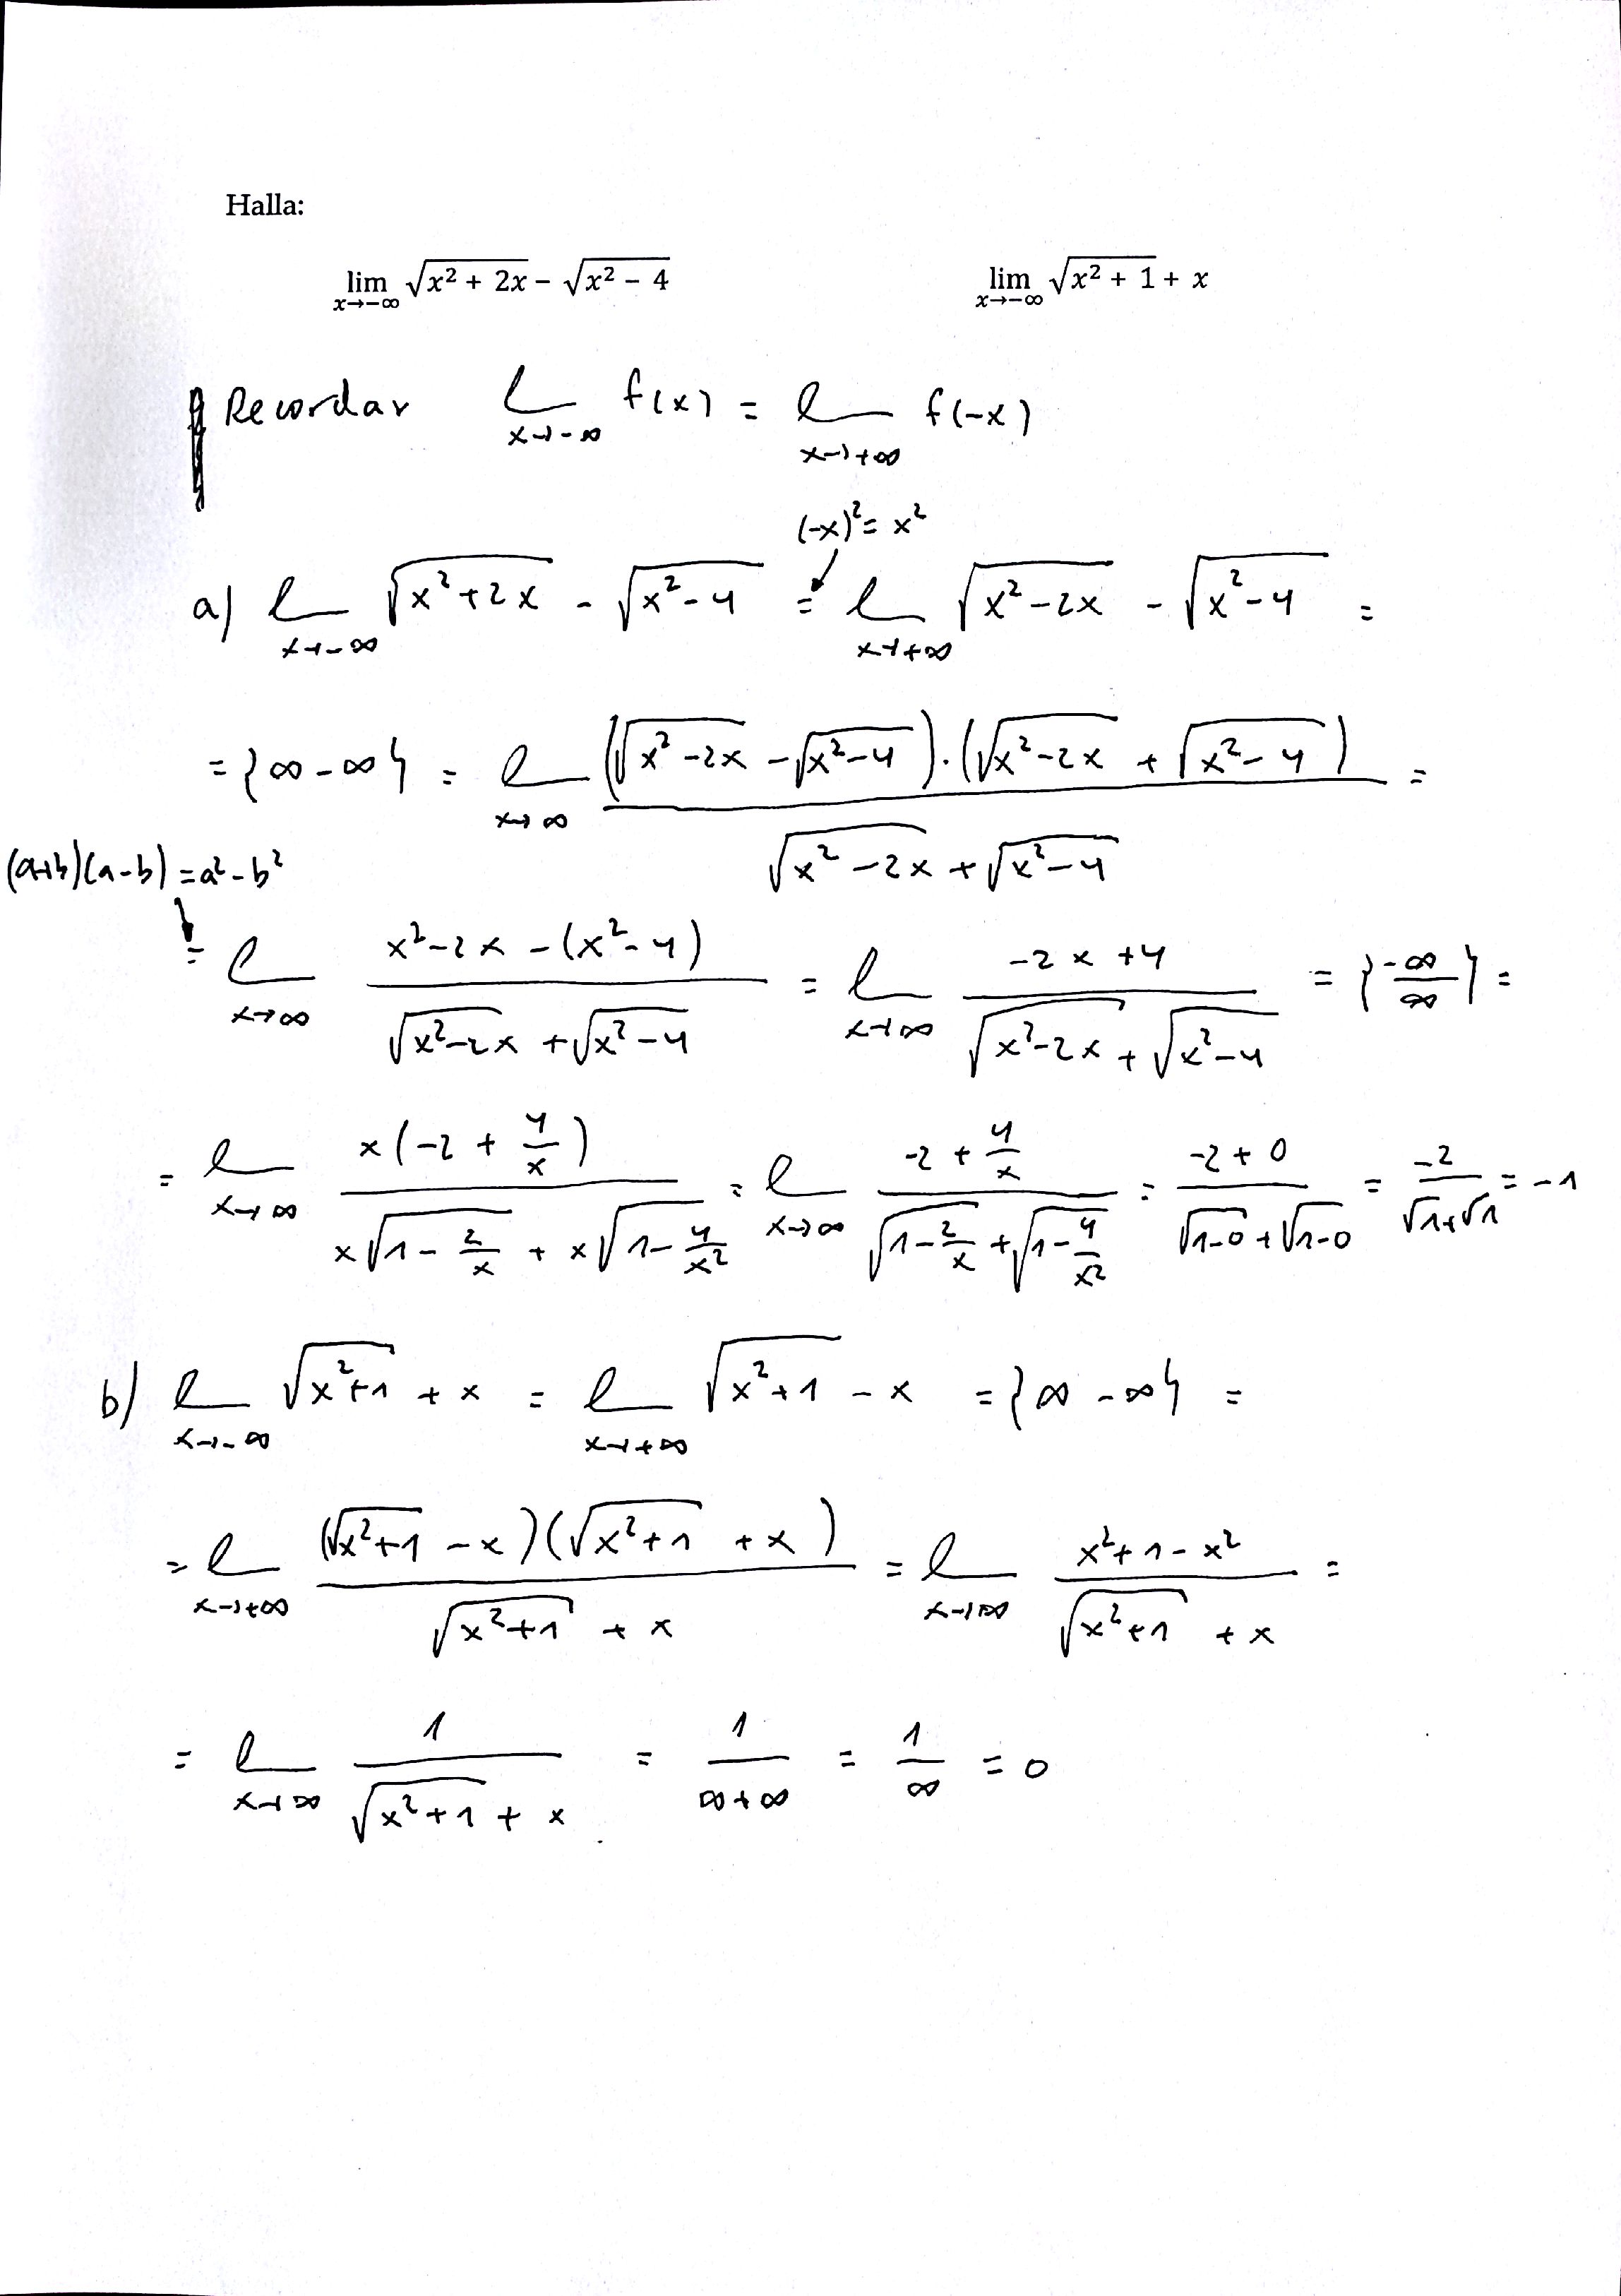 Halla:
lim x→−∞ √(x² + 2x) − √(x² − 4)    lim x→−∞ √(x² + 1) + x
Recordar l x→−∞ f(x) = l x→+∞ f(−x)
(−x)² = x²
a) l x→−∞ √(x²+2x) − √(x²−4) = l x→+∞ √(x²−2x) − √(x²−4) =
= {∞−∞} = l x→∞ ((√(x²−2x) − √(x²−4)) · (√(x²−2x) + √(x²−4))) / (√(x²−2x) + √(x²−4)) =
(a+b)(a−b) = a²−b²
= l x→∞ (x²−2x−(x²−4)) / (√(x²−2x) + √(x²−4)) = l x→∞ (−2x+4) / (√(x²−2x) + √(x²−4)) = {−∞/∞} =
= l x→∞ x(−2 + 4/x) / (x√(1−2/x) + x√(1−4/x²)) = l x→∞ (−2 + 4/x) / (√(1−2/x) + √(1−4/x²)) = (−2+0) / (√(1−0) + √(1−0)) = −2 / (√1+√1) = −1
b) l x→−∞ √(x²+1) + x = l x→+∞ √(x²+1) − x = {∞−∞} =
= l x→+∞ ((√(x²+1) − x)(√(x²+1) + x)) / (√(x²+1) + x) = l x→∞ (x²+1−x²) / (√(x²+1) + x) =
= l x→∞ 1 / (√(x²+1) + x) = 1 / (∞+∞) = 1/∞ = 0